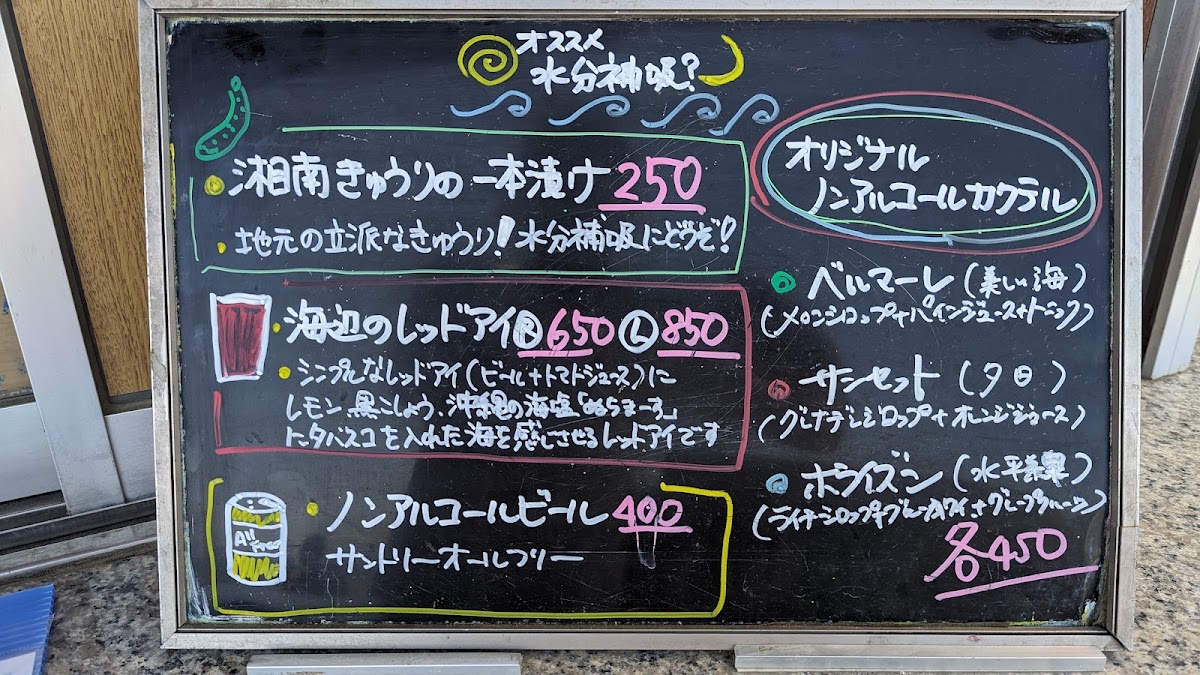 オススメ
水分補吸?
湘南きゅうりの一本漬け 250
地元の立派なきゅうり!水分補吸にどうぞ!
海辺のレッドアイ Ⓡ650 Ⓛ850
シンプルなレッドアイ(ビール+トマトジュース)に
レモン、黒こしょう、沖縄の海塩「ぬちまーす」
にタバスコを入れた海を感じさせるレッドアイです
All
Free
ノンアルコールビール 400
サントリーオールフリー
オリジナル
ノンアルコールカクテル
ベルマーレ(美しい海)
(メロンシロップ+パインジュース+トニック)
サンセット(夕日)
(グレナデンシロップ+オレンジジュース)
ホライズン(水平線)
(ライチシロップ+ブルーハワイ+グレープフルーツ)
各450